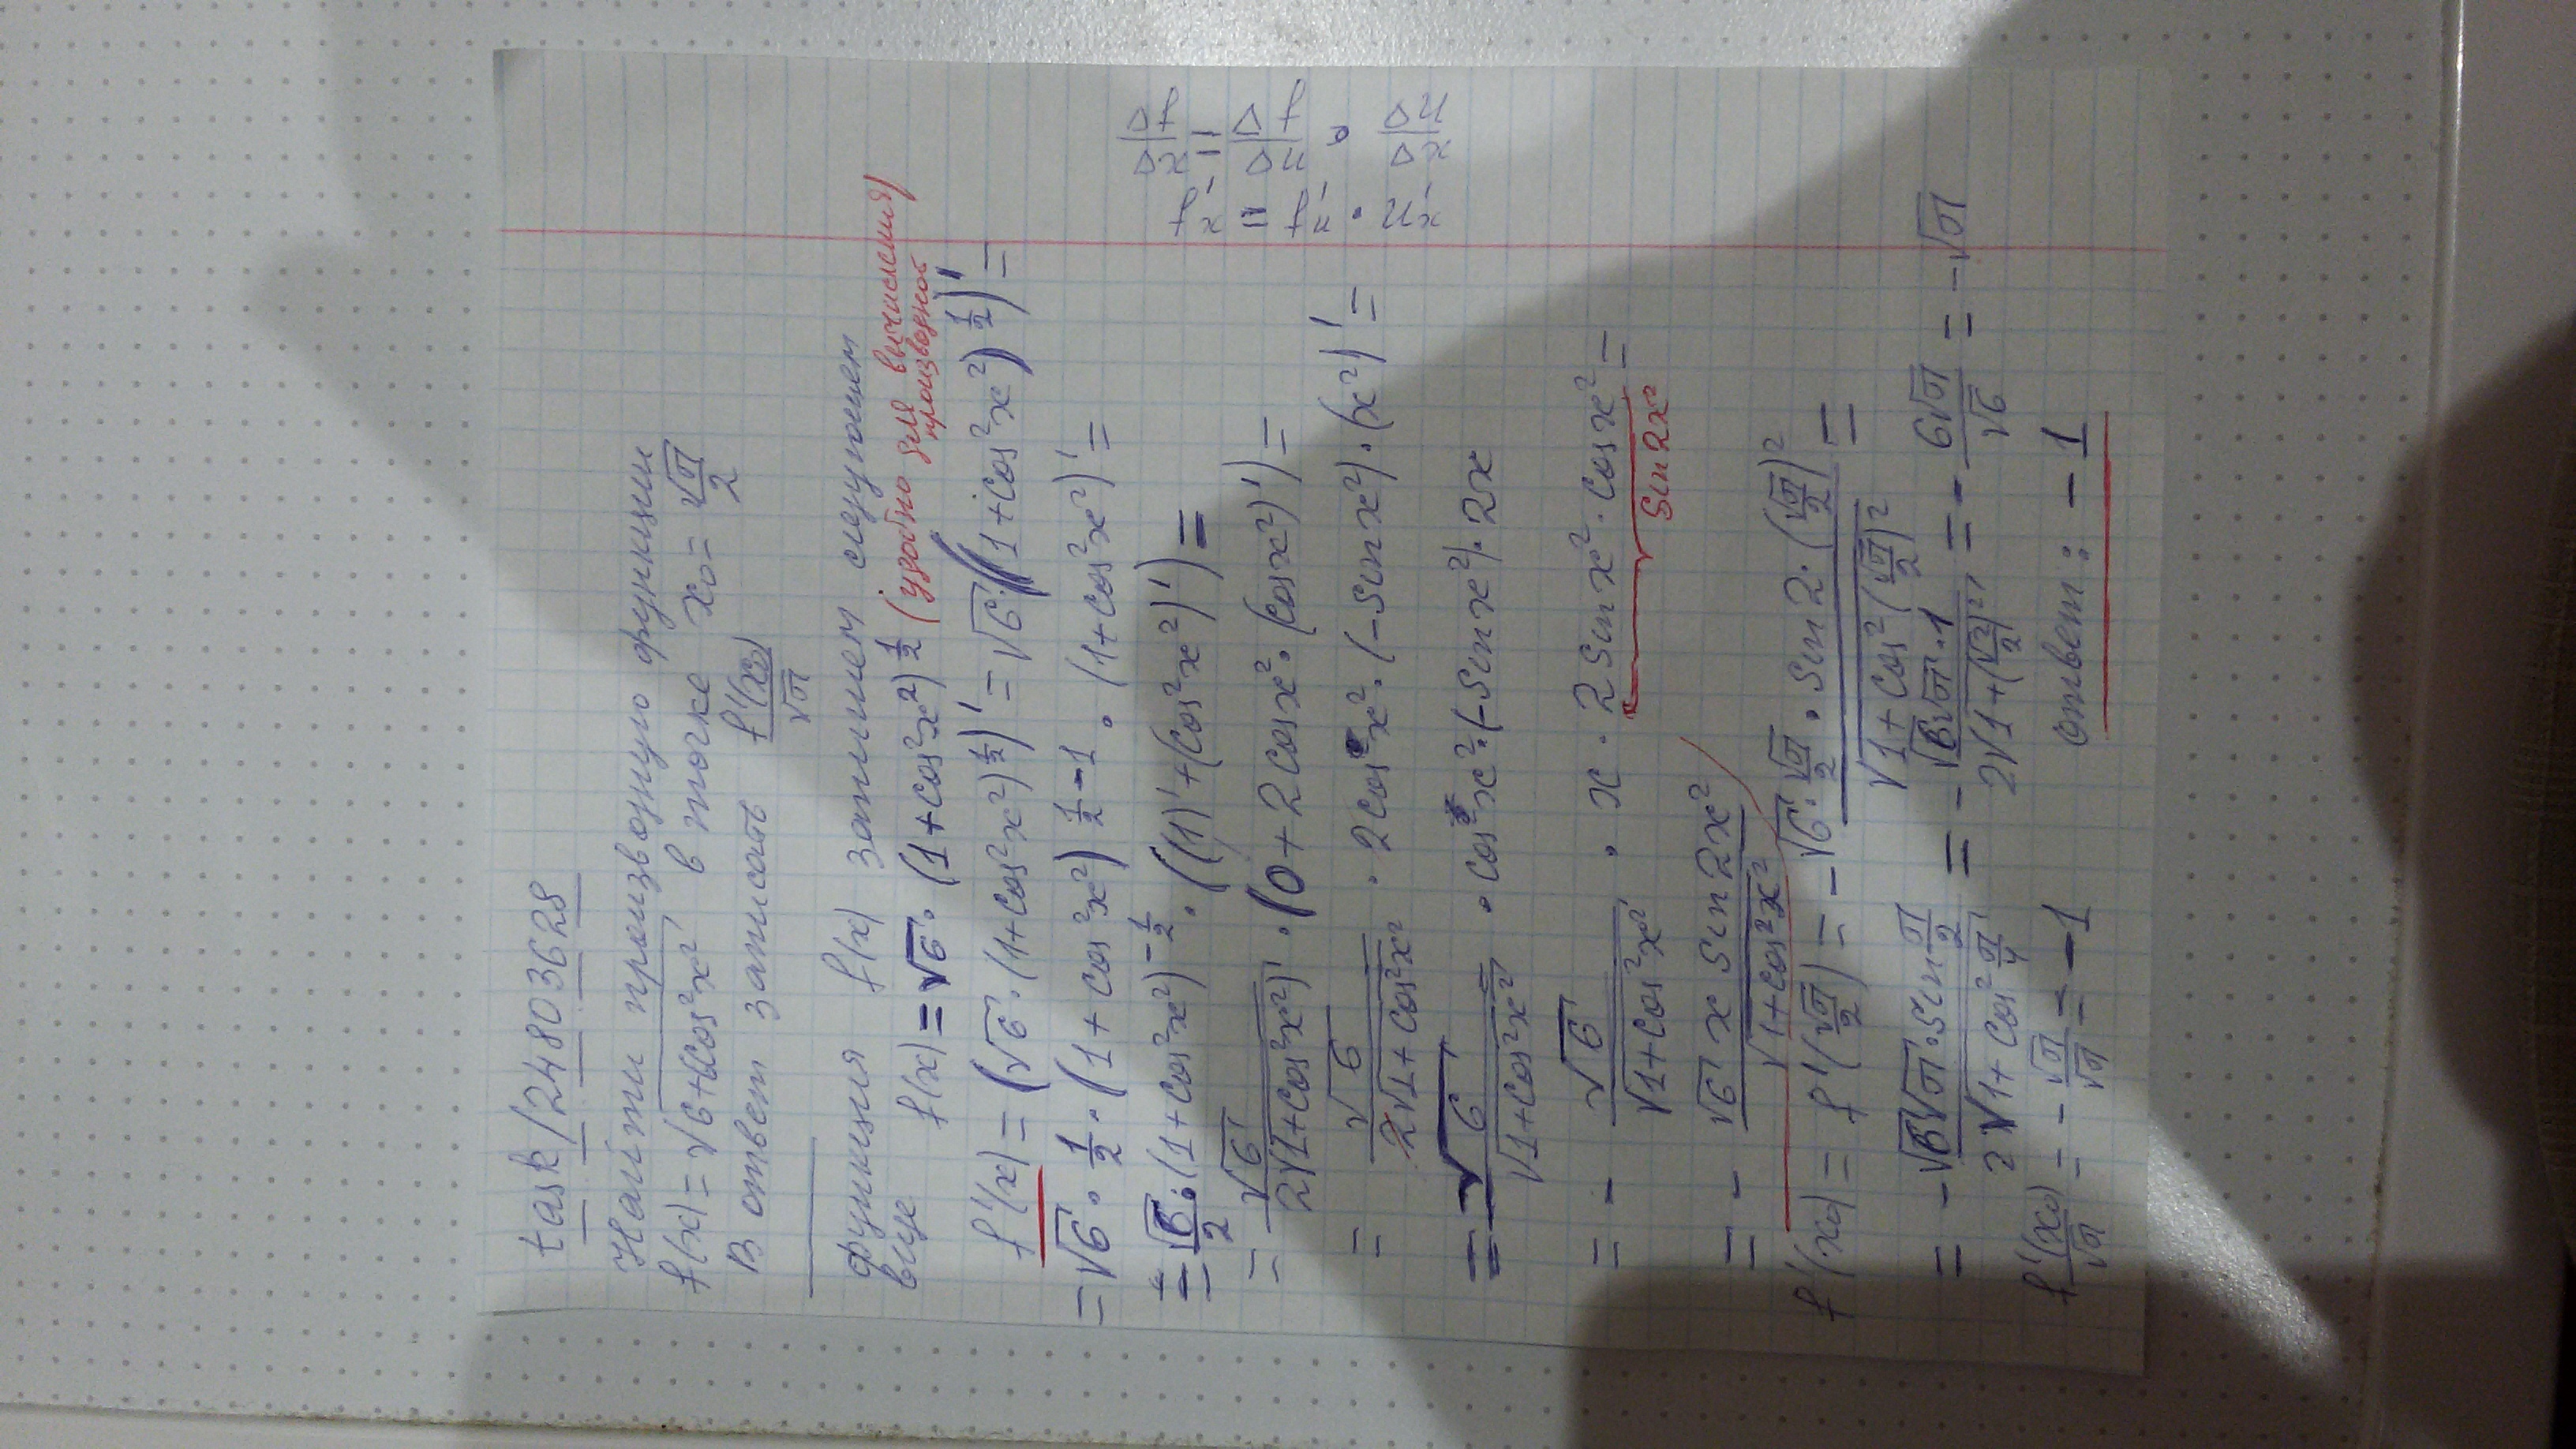 task/24803628
Найти производную функции
f(x) = √6+6cos²x² в точке x₀ = √π/2
В ответ записать f'(x₀)/√π
функция f(x) запишем следующем
виде f(x) = √6·(1+cos²x²)^½ (удобно для вычисления производной)
f'(x) = (√6·(1+cos²x²)^½)' = √6·((1+cos²x²)^½)' =
= √6·½·(1+cos²x²)^½-1 · (1+cos²x²)' =
= √6/2·(1+cos²x²)^-½·((1)'+(cos²x²)') =
= √6/2√(1+cos²x²)·(0+2cosx²·(cosx²)') =
= √6/2√1+cos²x² · 2cosx²·(-sinx²)·(x²)' =
= √6/√1+cos²x² · cosx²·(-sinx²)·2x
= - √6/√1+cos²x² · x · 2sinx²·cosx² =
sin2x²
= - √6 x sin2x²/√1+cos²x²
f'(x₀) = f'(√π/2) = - √6·√π/2·sin2·(√π/2)²/√1+cos²(√π/2)² =
= - √6√π·sin π/2/2√1+cos² π/4 = - √6√π·1/2√1+(√2/2)² = - 6√π/√6 = -√π
f'(x₀)/√π = - √π/√π = -1
ответ: -1
Δf/Δx = Δf/Δu · Δu/Δx
f'x = f'u · u'x